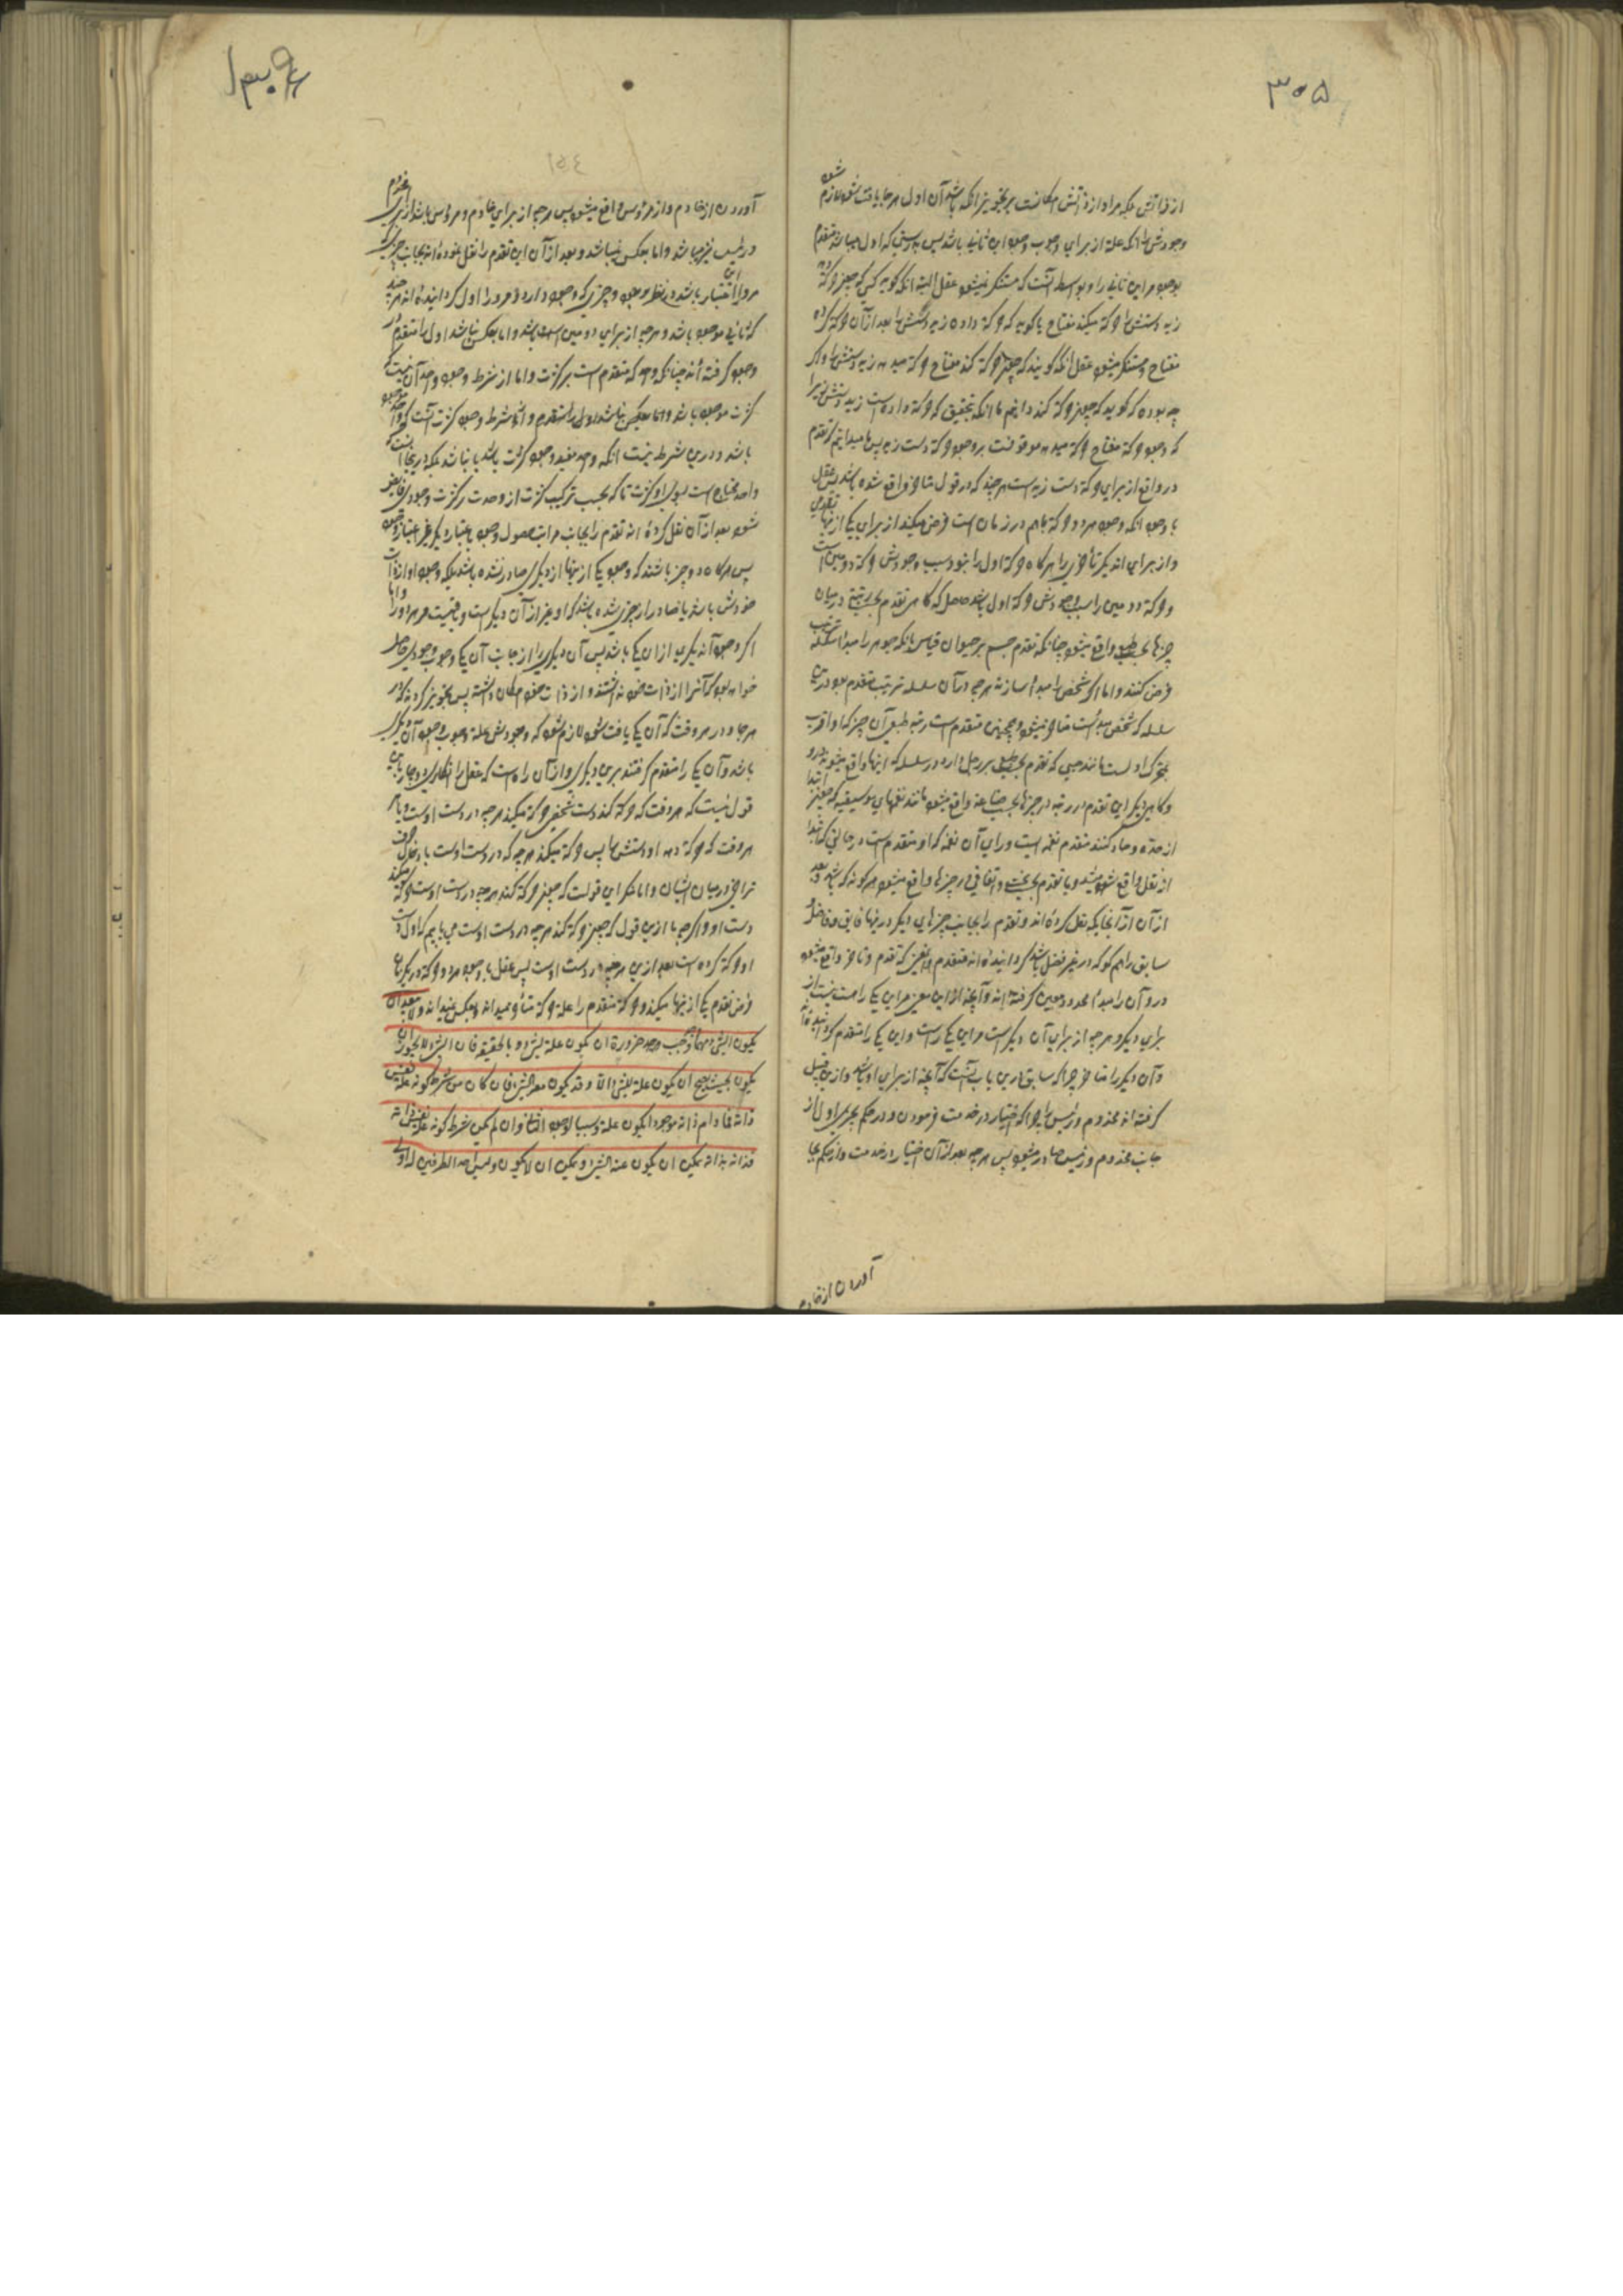 ۳۰۵
از ذاتش بلکه مر او از ذاتش امکانست بر تجویز انکه باشد آن اول هر جا یافت شود لازم شود
وجودش را انکه علة از برای وجوب وجود این ثانی باشد پس بدرستی که اول میباشد متقدم
بوجود مر این ثانی را و بواسطه آنست که مستنکر نمیشود عقل البته انکه گوید کسی که چون حرکة
زید دستش را حرکة میکند مفتاح یا گوید که حرکة داده زید دستش را بعد از آن حرکة کرده
مفتاح و مستنکر میشود عقل انکه گویند که چون حرکة کند مفتاح حرکة میدهد زید دستش را و اگر
چه بوده که گوید که چون حرکة کند دانیم ما انکه بتحقیق که حرکة داده است زید دستش را زیرا
که وجود حرکة مفتاح حرکة میدهد موقوفست بر وجود حرکة دست زید پس ما میدانیم که تقدم
در واقع از برای حرکة دست زید است هر چند که در قول متاخر واقع شده باشد پس عقل
با وجود انکه وجود هر دو حرکة باهم در زمان است فرض میکند از برای یکی از اینها تقدمی
و از برای اند دیگر تأخری را هر گاه حرکة اول را بنود سبب وجودش حرکة دومین است
و حرکة دومین را سبب وجودش حرکة اول باشد حاصل که گاهی تقدم بحسب رتبتی در میان
چیزها بحسب طبع واقع میشود چنانکه تقدم جسم بر حیوان قیاس بانکه جوهر را مبدأ سلسله ترتیب
فرض کنند و اما اگر شخص را مبدأ سازند هر چه در آن سلسله ترتیب متقدم بود در این
سلسله که شخص مبدأست متاخر میشود و همچنین متقدم است رتبه طبعی آن چیز که او اقرب
بمحرک اولست مانند صبی که تقدم بحسب طبع بر رجل دارد در سلسله که اینها واقع میشوند درو
و گاهی دیگر این تقدم در رتبه در چیزها بحسب صناعة واقع میشود مانند نغمهای موسیقیه که چون ابتدا
از حدة و حاد کنند متقدم نغمه ایست ورای آن نغمه که او متقدم است در حالتی که ابتدا
از ثقل واقع شود و یا تقدم بحسب بخت و اتفاقی در چیزها واقع میشود هر گونه که باشد بعد
از آن از آنجا که نقل کرده اند و تقدم را بجانب چیزهای دیگر در اینها فایق و فاضل
سابق را هم گو که در غیر فضل باشد گردانیده اند متقدم و انچیز که تقدم و تاخر واقع میشود
درو آن را مبدأ محدود معین گرفته اند و آنچه از این معنی مر این یکی راست نیست از
برای دیگر و هر چه از برای آن دیگر است مر این یکی راست و این یکی را متقدم گردانیده اند
و آن دیگر را متاخر چرا که سابق در این باب آنست که آنچه از برای او باشد و از این قبیل
گرفته اند مخدوم و رئیس را چرا که اختیار در خدمت فرمودن و در حکم بجبر اول از
جانب مخدوم و رئیس صادر میشود پس هر چه بعد از آن اختیار در خدمت و از حکم بجا
آوردن از خادم
آوردن از خادم و از مرئوس واقع میشود پس هر چه از برای خادم و مرئوس باشد از برای مخدوم
و رئیس نیز میباشد و اما بعکس نمیباشد و بعد از آن این تقدم را نقل نموده اند بجانب چیزی که
مر او را این اعتبار باشد در نظر بوجود و چیزی که وجود دارد مر او را اول گردانیده اند هر چند
که ثانی موجود باشد و هر چه از برای دومین است باشد و اما بعکس نباشد اول را متقدم در
وجود گرفته اند چنانکه واحد که متقدم است بر کثرت و اما از شرط وجود واحد آن نیست که
کثرت موجود باشد و اما بعکس نباشد اول را متقدم و از شرط وجود کثرت آنست که واحد موجود
باشد و درین شرط نیست انکه واحد مفید وجود کثرت باشد یا نباشد بلکه در اینجا آنست که
واحد محتاج است بسوی او کثرت تا که بحسب ترکیب کثرت از وحدت مر کثرت وجودی فایض
شود بعد از آن نقل کرده اند تقدم را بجانب مراتب حصول وجود باعتبار دیگر غیر اعتبار وجود
پس هر گاه دو چیز باشند که وجود یکی از اینها از دیگری صادر نشده باشد بلکه وجود او از ذات
خودش باشد یا صادر از چیزی شده باشد که او غیر از آن دیگر است و باقیست مر او را و اما
اگر وجود آن دیگری از آن یکی باشد پس آن دیگری را از جانب آن یکی وجوب وجودی حاصل
خواهد بود که آنرا از ذات خود نداشته و از ذات خود امکان داشته پس تجویز کردند که در
هر جا و در هر وقت که آن یکی یافت شود لازم شود که وجودش علة وجوب وجود آن دیگر
باشد و آن یکی را متقدم گرفتند برین دیگری و از آن راه است که عقل را انکاری در جایز باین
قول نیست که هر وقت که حرکة کند دست شخصی حرکة میکند هر چه در دست اوست و یا هر
هر وقت که حرکة دهد او دستش را پس حرکة میکند هر چه که در دست اوست با دخال حرف
تراخی در میان ایشان و اما منکر این قولست که چون حرکة کند هر چه در دست اوست حرکة میکند
دست او و اگر چه ما ازین قول که چون حرکة کند هر چه در دست اوست می یابیم که اول دست
او حرکة کرده است بعد ازین هر چه در دست اوست پس عقل با وجود هر دو حرکة در یک زمان
فرض تقدم یکی از اینها میکند و حرکة متقدم را علة حرکة متأخر میداند و بعکس نمیداند ولا یبعد ان
یکون الشئ مهما وجد وجب ضرورة ان یکون علة لشئ و بالحقیقه فان الشئ لا یجوز ان
یکون بحیث یصح ان یکون علة للشئ الا و قد یکون معه الشئ فان کان من شرط کونه علة نفس
ذاته فما دام ذاته موجودا یکون علة و سببا لوجود الثانی و ان لم یکن شرط کونه علة نفس ذاته
فذاته بذاته یمکن ان یکون عنه الشئ و یمکن ان لا یکون و لیس احد الطرفین اولی